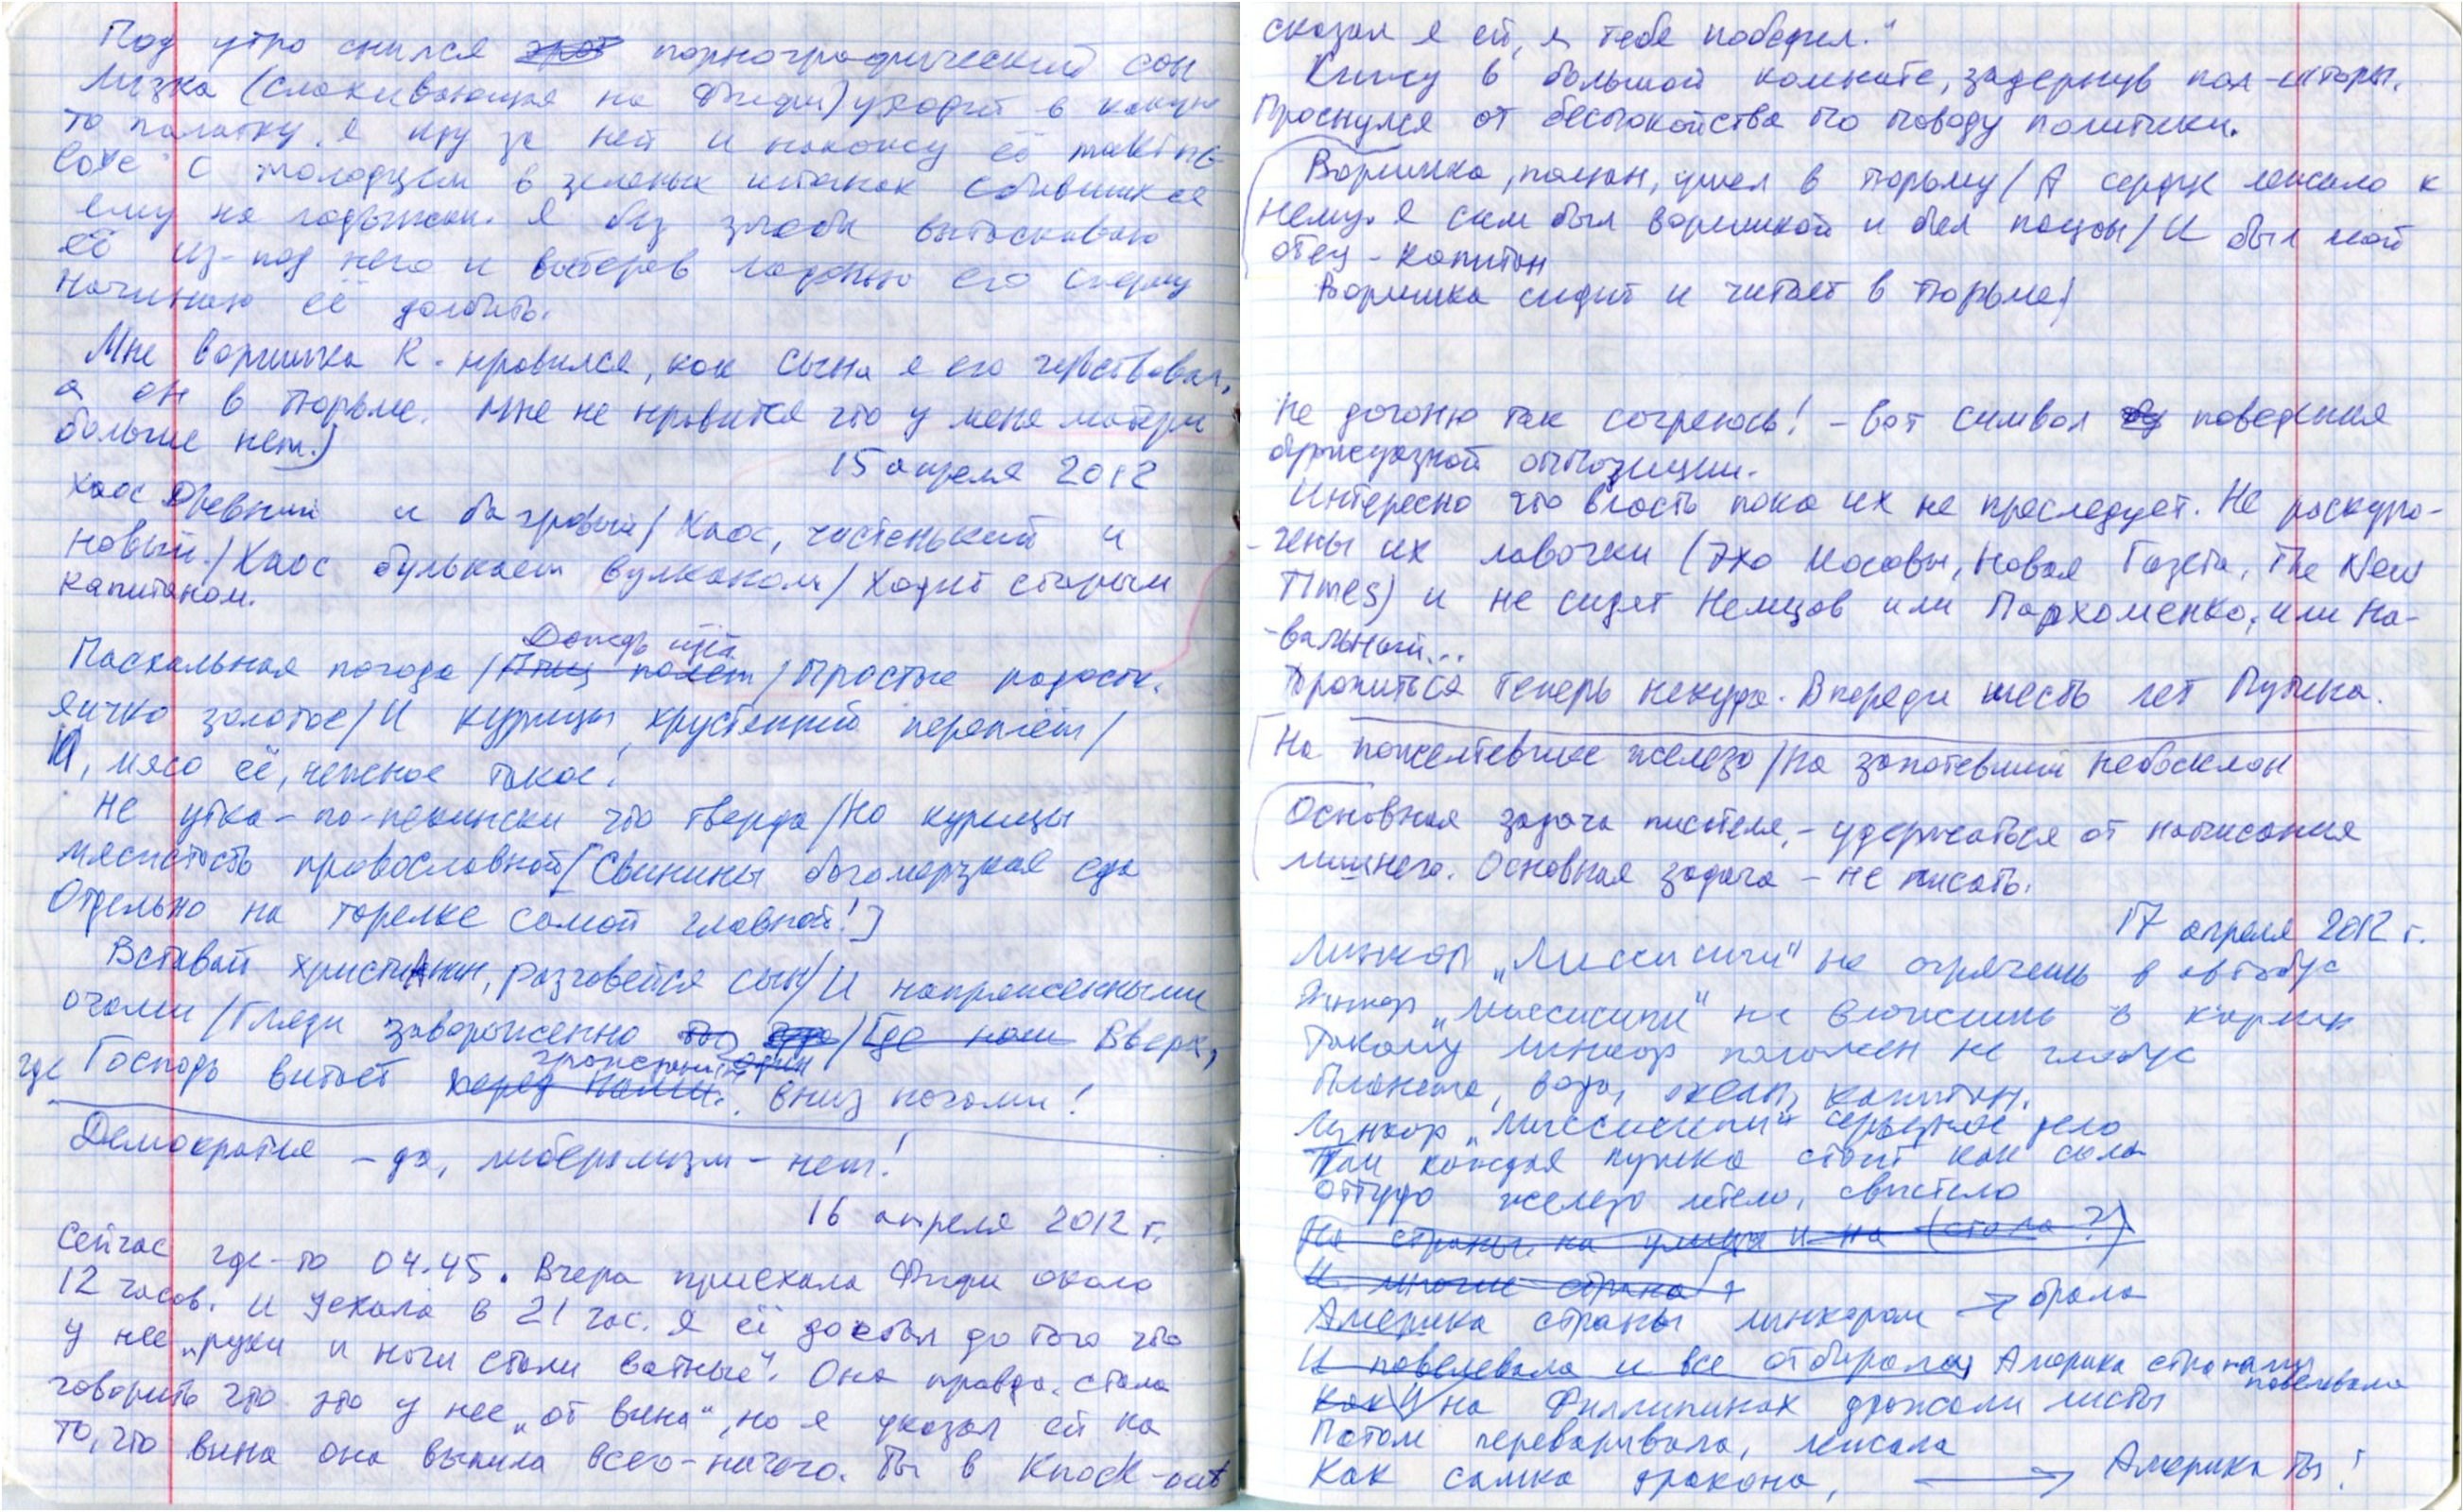 Под утро снился порнографический сон
Лизка (смахивающая на Фифи) уходит в какую
то палатку. Я иду за ней и нахожу её making
love с молодцем в зеленых штанах сбившихся
ему на лодыжки. Я без злобы вытаскиваю
её из-под него и вытерев ладонью его сперму
начинаю её долбить.
Мне воришка К. нравился, как сына я его чувствовал,
а он в тюрьме. Мне не нравится что у меня матери
больше нет.)
15 апреля 2012
Хаос древний и багровый / Хаос, чистенький и
новый. / Хаос булькает вулканом / Ходит старым
капитаном.
Дождь идёт
Пасхальная погода / Птиц полет / Простые радости.
яичко золотое / И курицы хрустящий переплёт /
И, мясо её, нежное такое!
Не утка-по-пекински что тверда / Но курицы
мясистость православной / [Свинины богомерзкая еда
Отдельно на тарелке самой главной!]
Вставай христианин, разговейся сын / И напряженными
очами / Гляди завороженно / Где нам Вверх,
где Господь витает перед нами. вниз ногами!
Демократия – да, либерализм – нет!
16 апреля 2012 г.
Сейчас где-то 04.45. Вчера приехала Фифи около
12 часов. и уехала в 21 час. Я её довел до того что
у нее „руки и ноги стали ватные". Она правда стала
говорить что это у нее „от вина", но я указал ей на
то, что вина она выпила всего-ничего. Ты в Knock-out
сказал я ей, я тебя победил."
Сижу в большой комнате, задернув пол-шторы.
Проснулся от беспокойства по поводу политики.
Воришка, пацан, ушел в тюрьму / А сердце лежало к
нему. Я сам был воришкой и был пацан / И был мой
отец – капитан
Воришка сидит и читает в тюрьме /
Не догоню так согреюсь! – вот символ поведения
буржуазной оппозиции.
Интересно что власть пока их не преследует. Не раскуро-
-чены их лавочки (Эхо Москвы, Новая Газета, The New
Times) и не сидят Немцов или Пархоменко, или На-
-вальный...
Торопиться теперь некуда. Впереди шесть лет Путина.
На пожелтевшее железо / На запотевший небосклон
Основная задача писателя, – удержаться от написания
лишнего. Основная задача – не писать.
17 апреля 2012 г.
Линкор „Миссисипи" не спрячешь в автобус
Линкор „Миссисипи" не вложишь в карман
Такому линкор положен не глобус
Планета, вода, океан, капитан.
Линкор „Миссисипи" серьезное дело
Там каждая пушка стоит как скала
Оттуда железо летело, свистело
На страны, на улицы и на (стала?)
И многие страна
Америка страны линкором → брала
И повелевала и все отбирала, Америка странами повелевала
Как И на Филлипинах дрожали листы
Потом переваривала, лежала
Как самка дракона, → Америка ты!